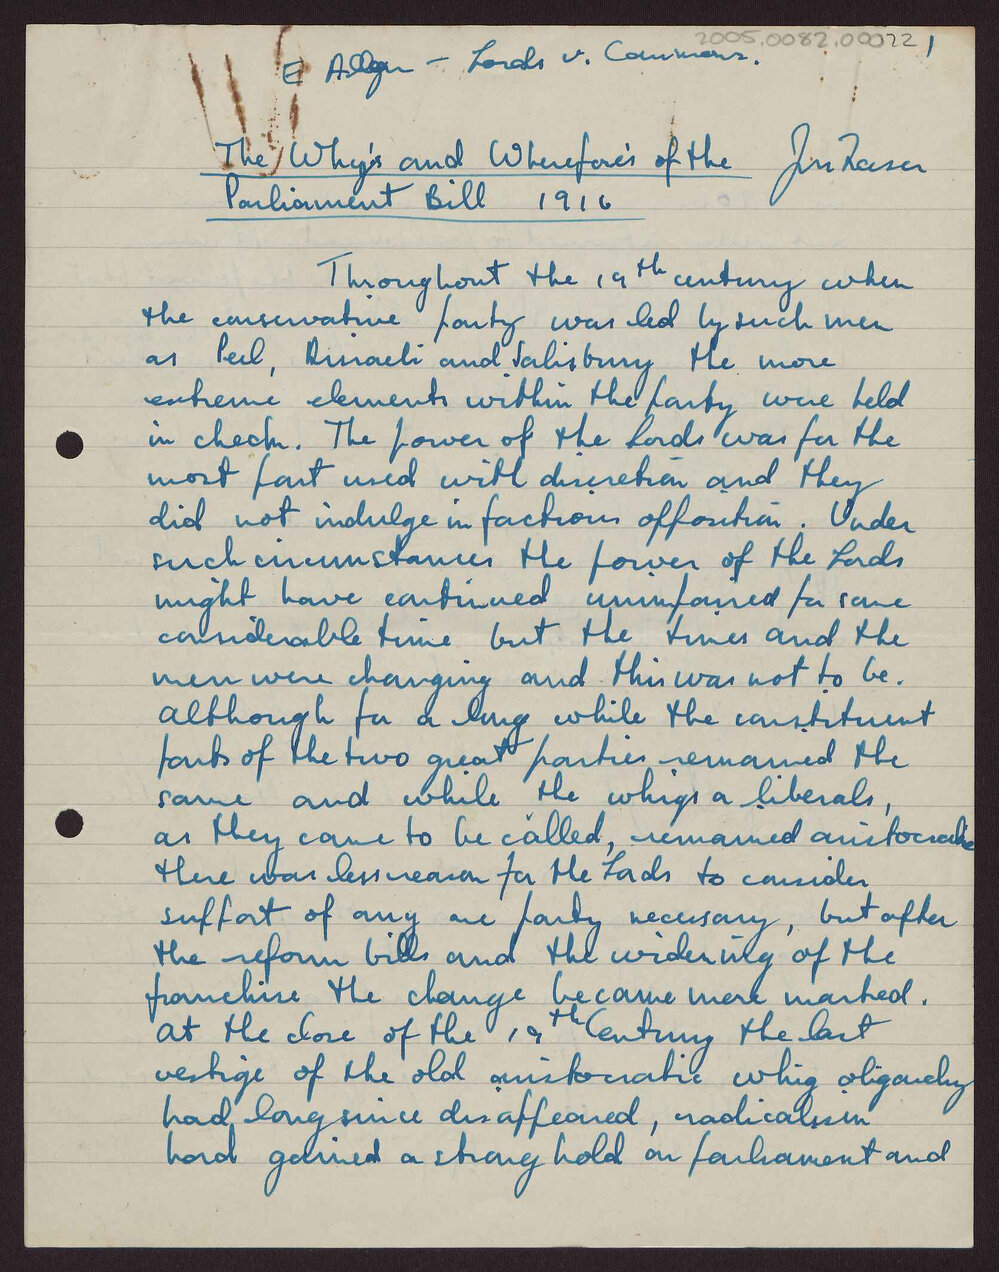 2005.0082.00022 1
E Allyn - Lords v. Commons.
The Why's and Wherefore's of the
Parliament Bill 1910
Throughout the 19th century when
the conservative party was led by such men
as Peel, Disraeli and Salisbury the more
extreme elements within the party were held
in check. The power of the Lords was for the
most part used with discretion and they
did not indulge in factious opposition. Under
such circumstances the power of the Lords
might have continued unimpaired for some
considerable time but the times and the
men were changing and this was not to be.
Although for a long while the constituent
parts of the two great parties remained the
same and while the whigs or liberals,
as they came to be called, remained aristocratic
there was less reason for the Lords to consider
support of any one party necessary, but after
the reform bills and the widening of the
franchise the change became more marked.
At the close of the 19th Century the last
vestige of the old aristocratic whig oligarchy
had long since disappeared, radicalism
had gained a strong hold on parliament and